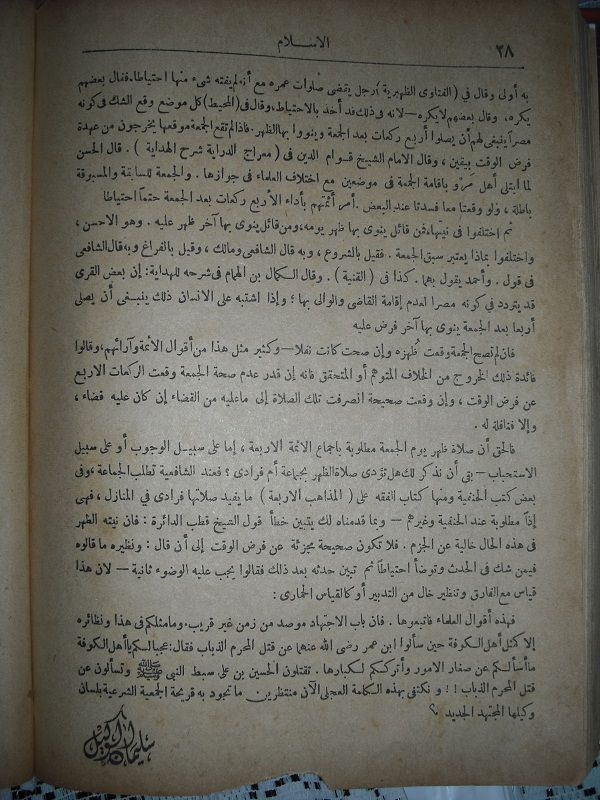 ٣٨
الاسلام
به أولى وقال فى (الفتاوى الظهيرية) رجل يقضى صلوات عمره مع أنه لم يفته شىء منها احتياطا. فقال بعضهم
يكره، وقال بعضهم لا يكره — لانه فى ذلك قد أخذ بالاحتياط، وقال فى (المحيط) كل موضع وقع الشك فى كونه
مصراً ينبغى لهم أن يصلوا أربع ركعات بعد الجمعة وينووا بها الظهر. فاذا لم تقع الجمعة موقعها يخرجون من عهدة
فرض الوقت بيقين، وقال الامام الشيخ قوام الدين فى (معراج الدراية شرح الهداية). قال الحسن
لما ابتلى أهل مرو باقامة الجمعة فى موضعين مع اختلاف العلماء فى جوازها. والجمعة للسابقة والمسبوقة
باطلة، ولو وقعتا معا فسدتا عند البعض. أمر أئمتهم بأداء الأربع ركعات بعد الجمعة حتما احتياطا
ثم اختلفوا فى نيتها، فمن قائل ينوى بها ظهر يومه، ومن قائل ينوى بها آخر ظهر عليه. وهو الاحسن،
واختلفوا بماذا يعتبر سبق الجمعة. فقيل بالشروع، وبه قال الشافعى ومالك، وقيل بالفراغ وبه قال الشافعى
فى قول. وأحمد يقول بهما. كذا فى (القنية). وقال الكمال بن الهمام فى شرحه للهداية: إن بعض القرى
قد يتردد فى كونه مصرا لعدم إقامة القاضى والوالى بها؛ وإذا اشتبه على الانسان ذلك ينبغى أن يصلى
أربعا بعد الجمعة ينوى بها آخر فرض عليه
فان لم تصح الجمعة وقعت ظهره وإن صحت كانت نفلا — وكثير مثل هذا من أقوال الأئمة وآرائهم، وقالوا
فائدة ذلك الخروج من الخلاف المتوهم أو المتحقق فانه إن قدر عدم صحة الجمعة وقعت الركعات الاربع
عن فرض الوقت، وإن وقعت صحيحة انصرفت تلك الصلاة إلى ما عليه من القضاء إن كان عليه قضاء،
وإلا فنافلة له.
فالحق أن صلاة ظهر يوم الجمعة مطلوبة باجماع الائمة الاربعة، إما على سبيل الوجوب أو على سبيل
الاستحباب — بقى أن نذكر لك هل تؤدى صلاة الظهر بجماعة أم فرادى؟ فعند الشافعية تطلب الجماعة، وفى
بعض كتب الحنفية ومنها كتاب الفقه على (المذاهب الاربعة) ما يفيد صلاتها فرادى فى المنازل، فهى
إذاً مطلوبة عند الحنفية وغيرهم — وبما قدمناه لك يتبين خطأ قول الشيخ قطب الدائرة: فان نيته الظهر
فى هذه الحال خالية عن الجزم. فلا تكون صحيحة مجزئة عن فرض الوقت إلى أن قال: ونظيره ما قالوه
فيمن شك فى الحدث وتوضأ احتياطاً ثم تبين حدثه بعد ذلك فقالوا يجب عليه الوضوء ثانية — لان هذا
قياس مع الفارق وتنظير خال من التدبير أو كالقياس الحمارى:
فهذه أقوال العلماء فاتبعوها. فان باب الاجتهاد موصد من زمن غير قريب. وما مثلكم فى هذا ونظائره
إلا كمثل أهل الكوفة حين سألوا ابن عمر رضى الله عنهما عن قتل المحرم الذباب فقال: عجبا لكم يا أهل الكوفة
ما أسألكم عن صغار الامور وأترككم لكبارها. تقتلون الحسين بن على سبط النبى ﷺ وتسألون عن
قتل المحرم الذباب!! ونكتفى بهذه الكلمة العجلى الآن منتظرين ما تجود به قريحة الجمعية الشرعية بلسان
وكيلها المجتهد الجديد ؟
سليمان الوكيل